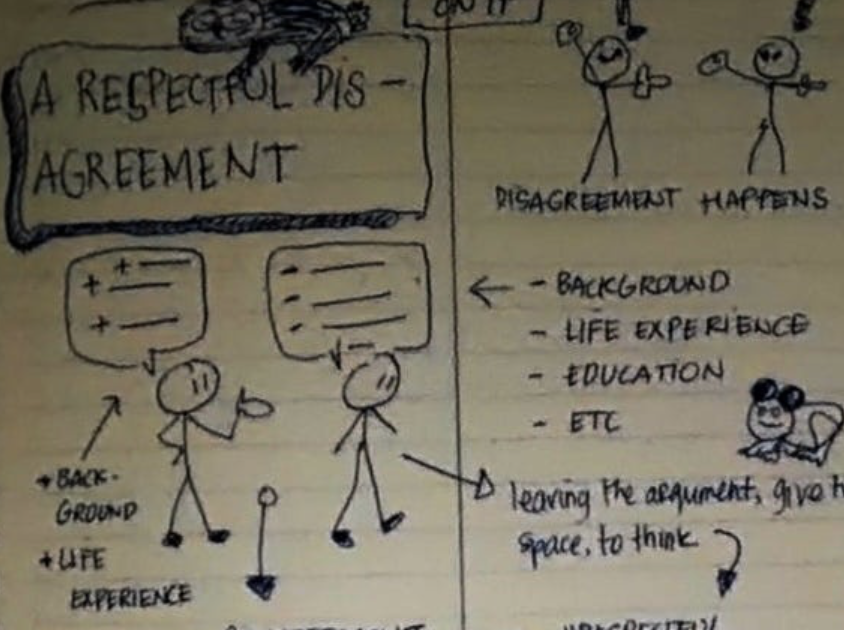 ON IT
A RESPECTFUL DIS-
AGREEMENT
+ BACK-
GROUND
+ LIFE
EXPERIENCE
DISAGREEMENT HAPPENS
- BACKGROUND
- LIFE EXPERIENCE
- EDUCATION
- ETC
leaving the argument, give
space, to think